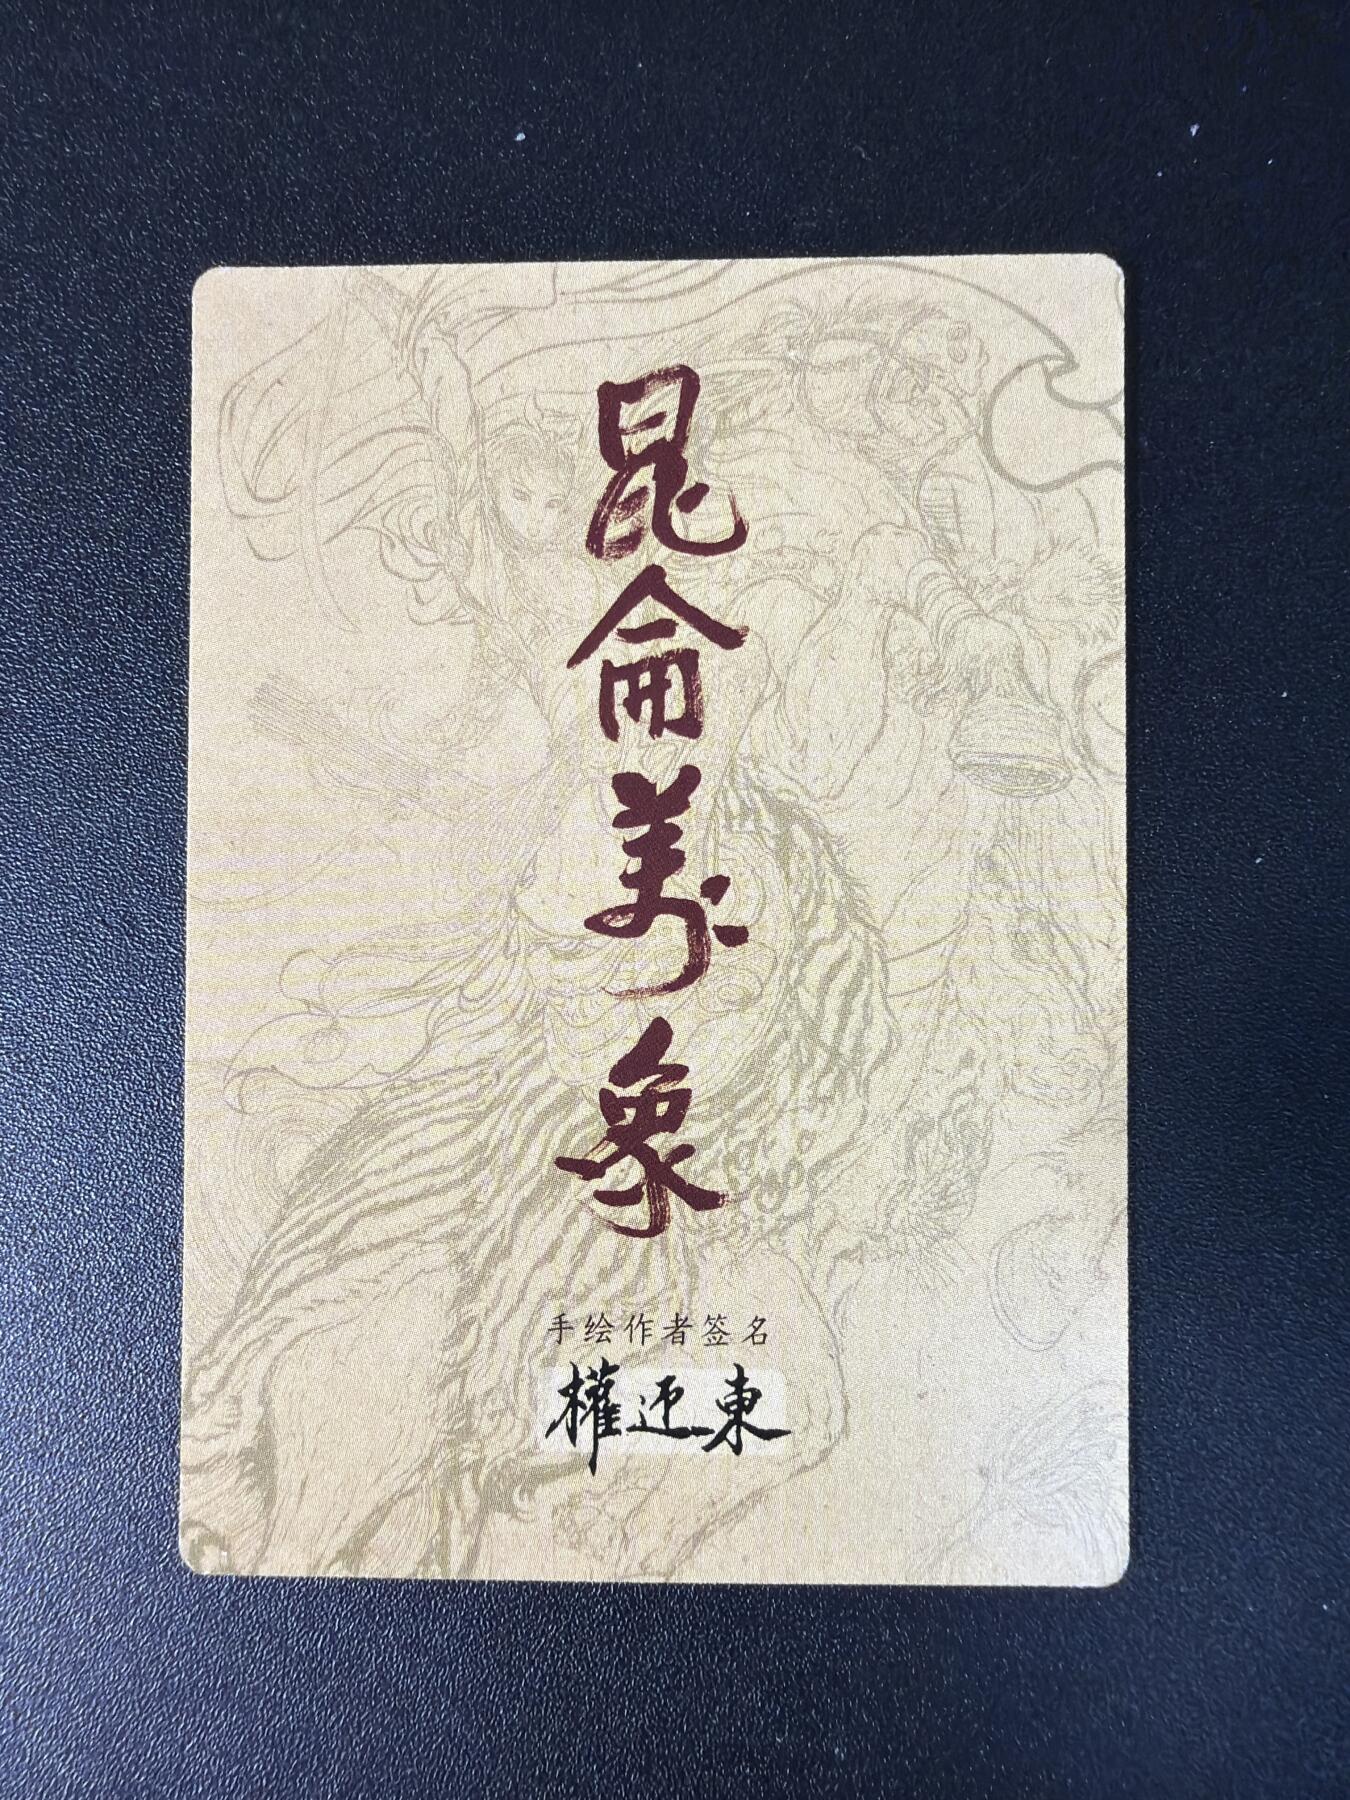 昆侖萬象
手绘作者签名
權迎東